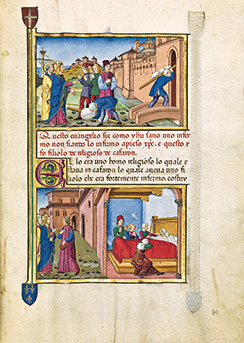 Questo euangelio sie como yhu sano uno infer
mo non siando lo infermo apreso xpc. e questo y
fo filiolo de religioso de cafarnū.
Elo era uno homo religioso lo quale
staua in cafarnū lo quale aueua uno fi
liolo che era fortemente infermo. costuy